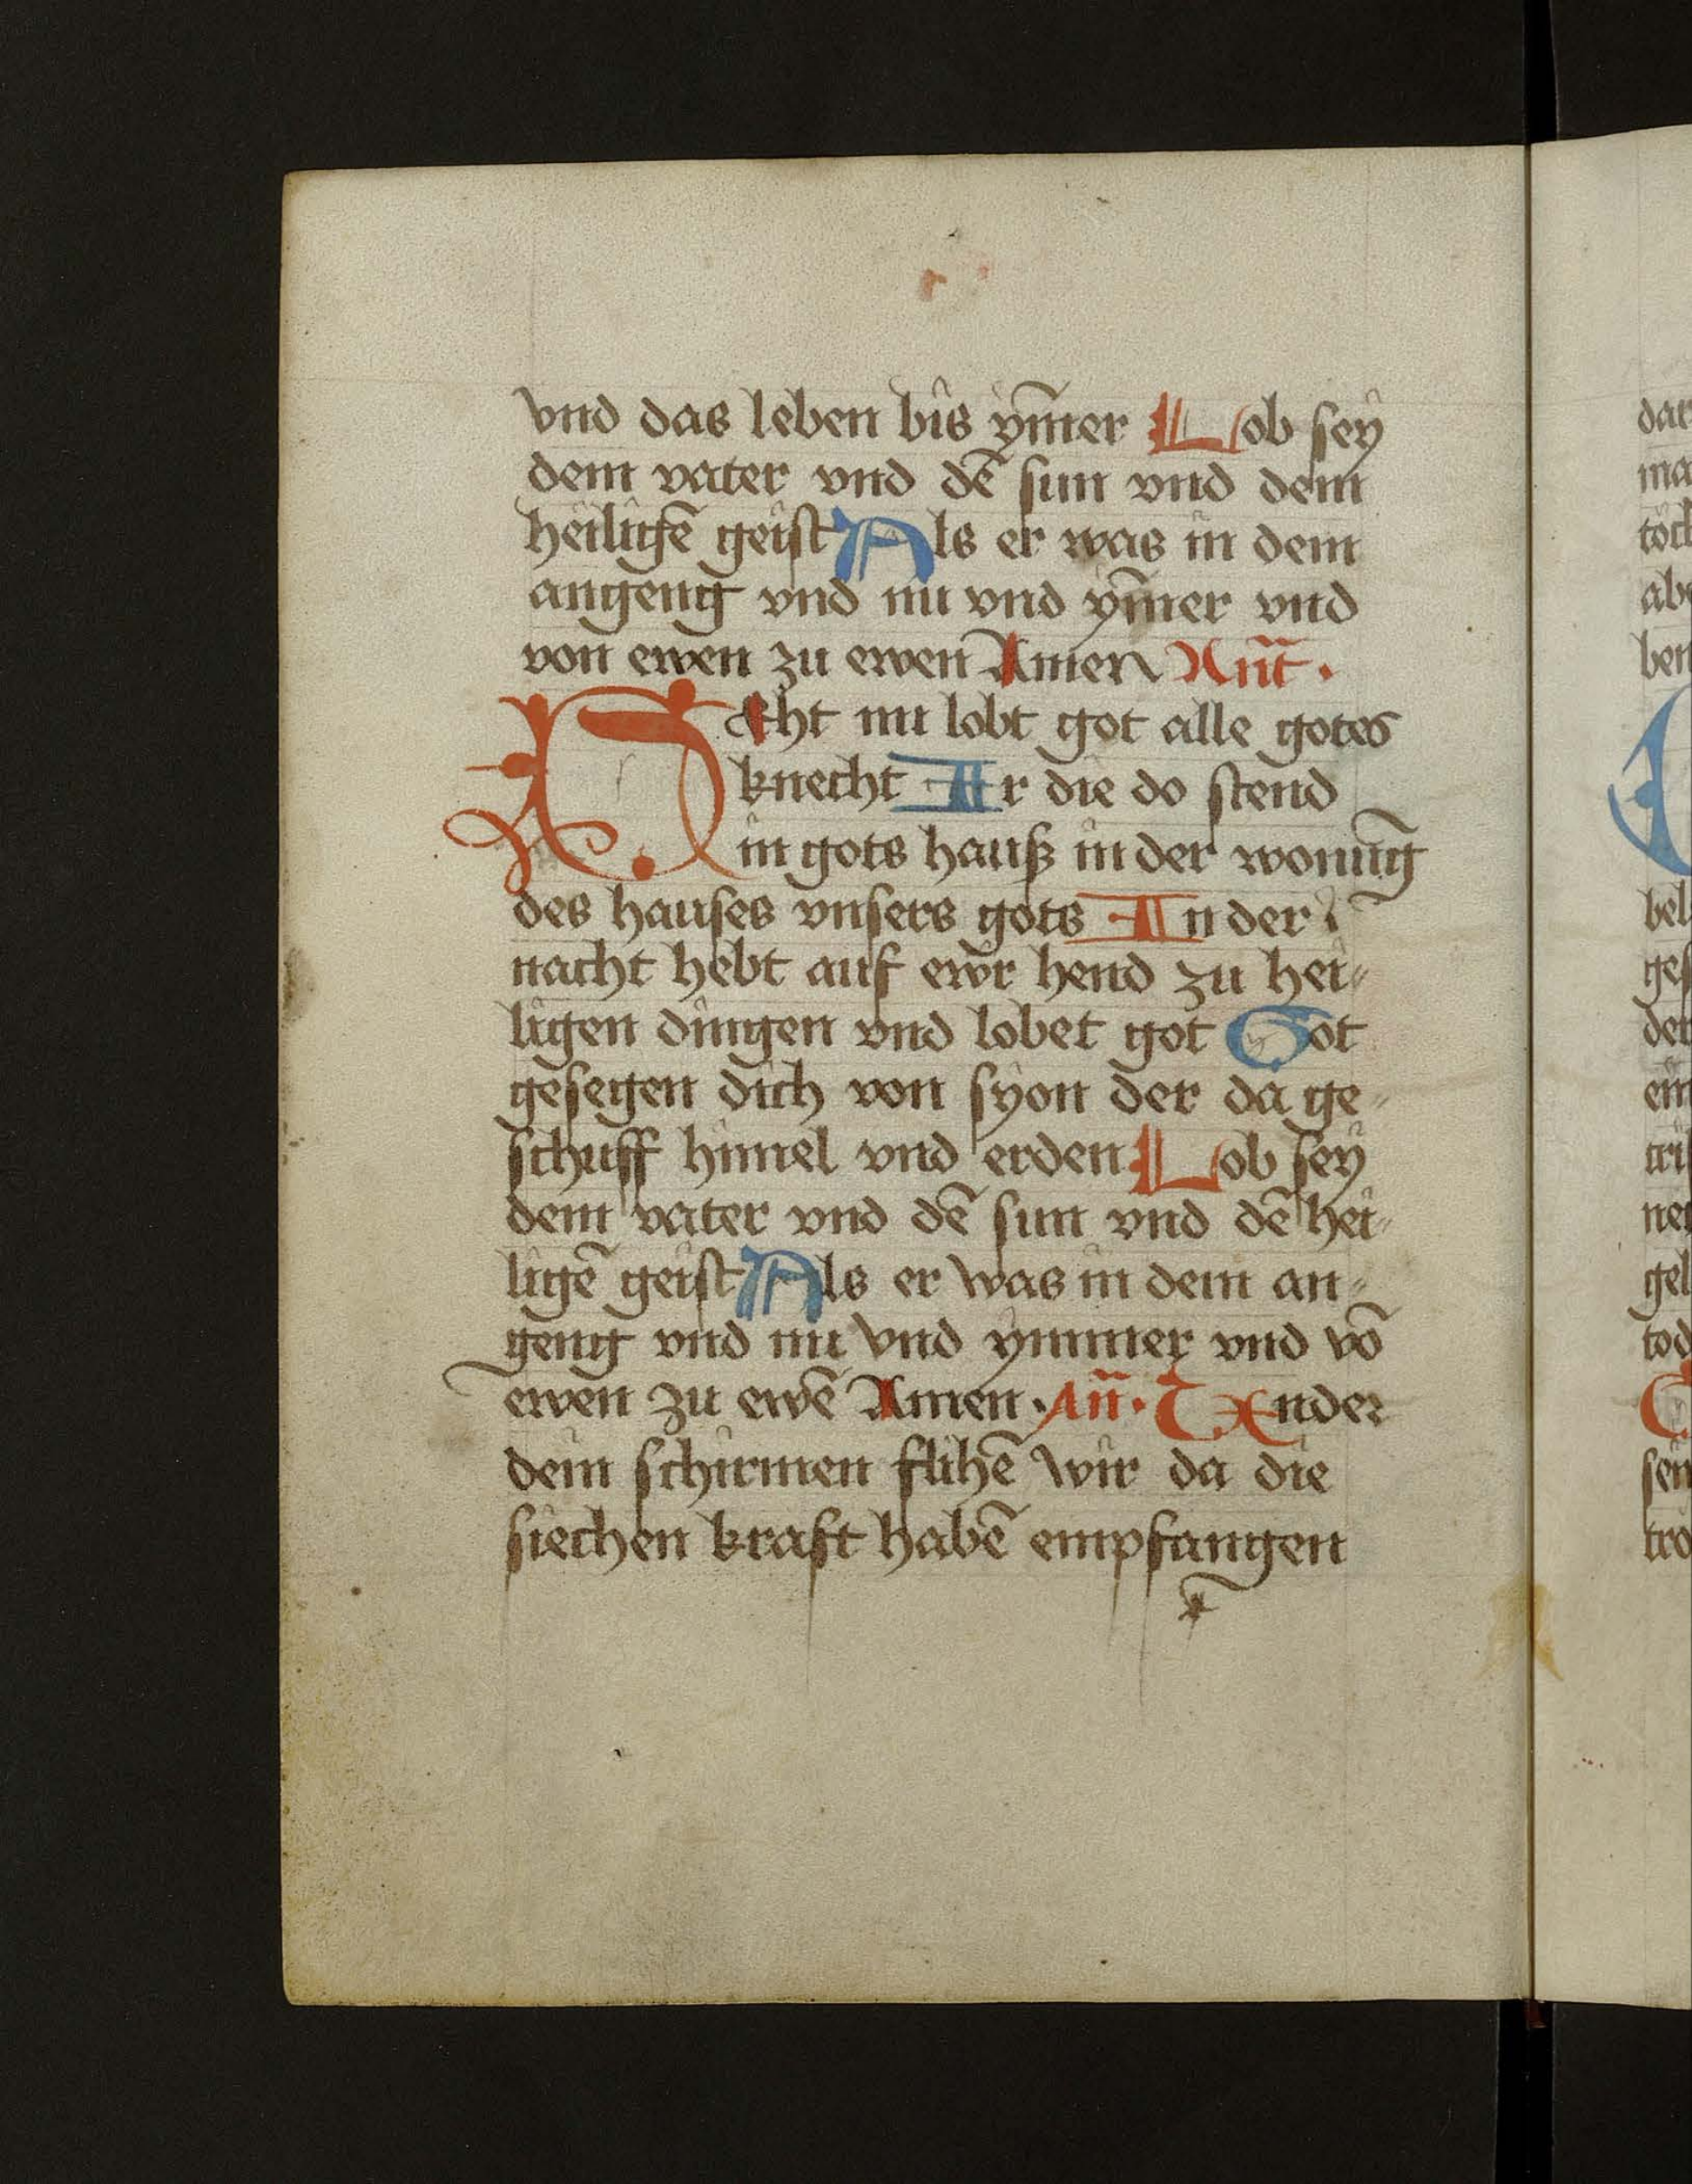 vnd das leben bis ym̄er Lob sey
dem vater vnd dē sun vnd dem
heiligē geist Als er was in dem
angeng vnd nu vnd ym̄er vnd
von ewen zu ewen Amen Ant̄ ·
Secht nu lobt got alle gotes
knecht Ir die do stend
in gots hauß in der wonūg
des hauses vnsers gots In der
nacht hebt auf ewr hend zu hei-
ligen dingen vnd lobet got Got
gesegen dich von syon der da ge-
schuff himel vnd erden Lob sey
dem vater vnd dē sun vnd dē hei-
ligē geist Als er was in dem an-
geng vnd nu vnd ymmer vnd vō
ewen zu ewē Amen · An̄ · Vnder
dein schirmen flihē wir da die
siechen kraft habē empfangen
dar
ma
töch
abe
ben
bel
ges
der
ein
tris
ner
gel
tod
sen
tro